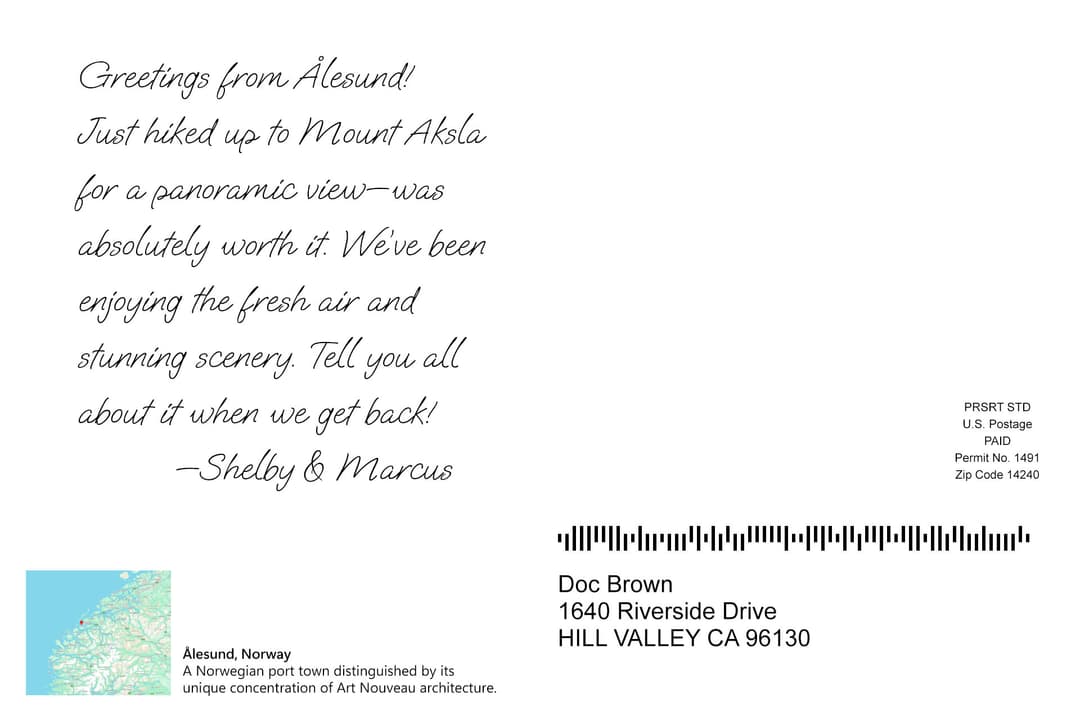 Greetings from Ålesund!
Just hiked up to Mount Aksla
for a panoramic view—was
absolutely worth it. We've been
enjoying the fresh air and
stunning scenery. Tell you all
about it when we get back!
—Shelby & Marcus
PRSRT STD
U.S. Postage
PAID
Permit No. 1491
Zip Code 14240
Doc Brown
1640 Riverside Drive
HILL VALLEY CA 96130
Ålesund, Norway
A Norwegian port town distinguished by its
unique concentration of Art Nouveau architecture.